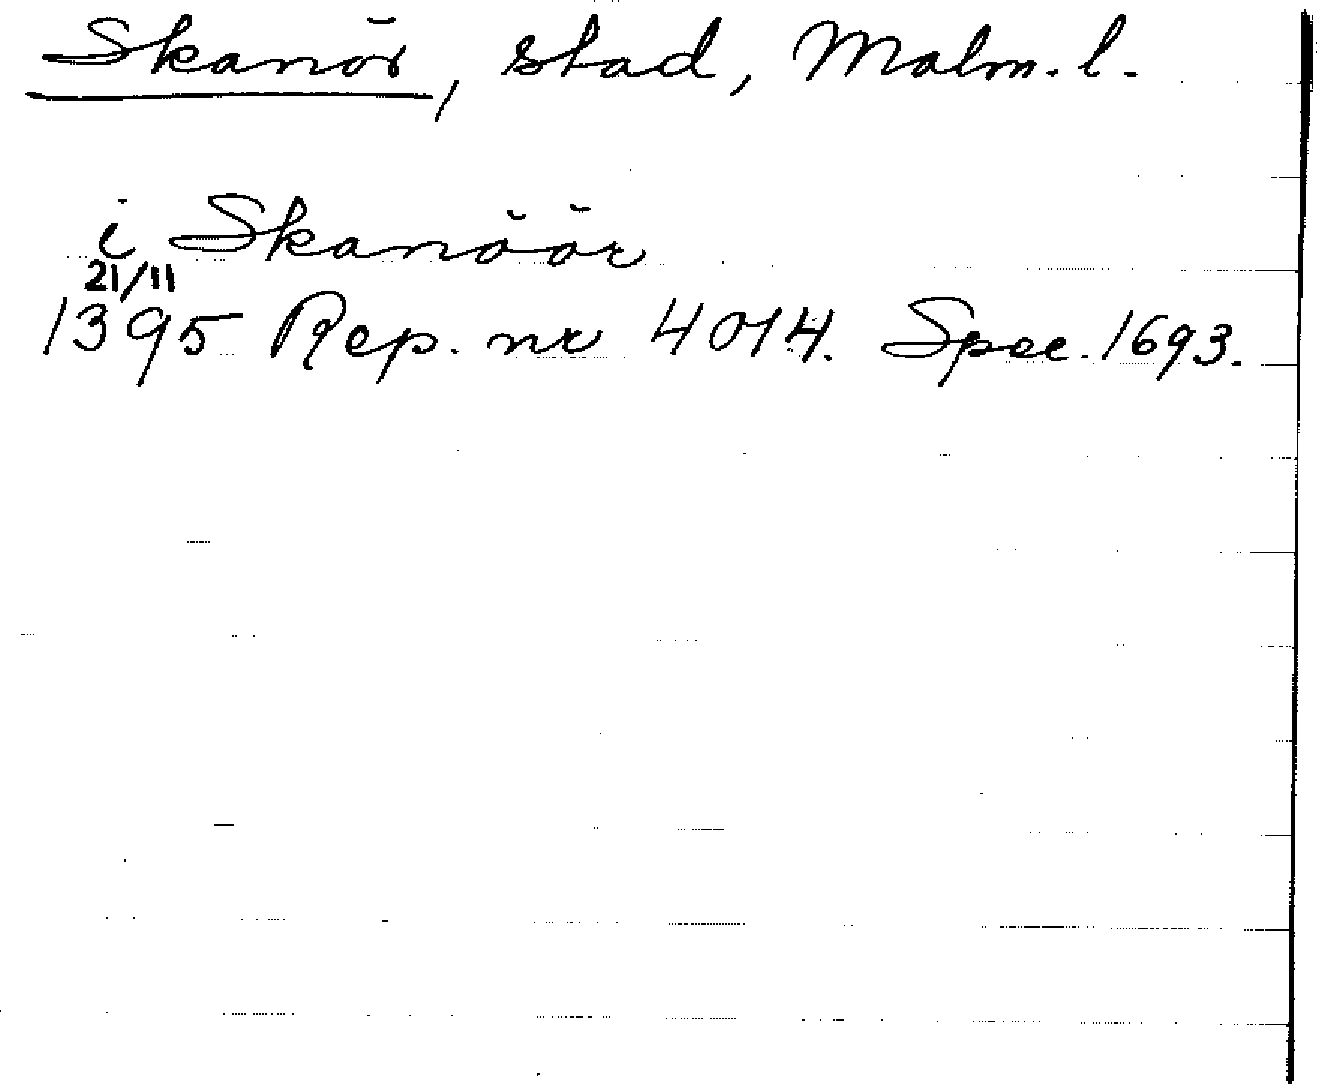 Skanör, stad, Malm. l.
i Skanöör
21/11
1395 Rep. nr 4014. Spec. 1693.